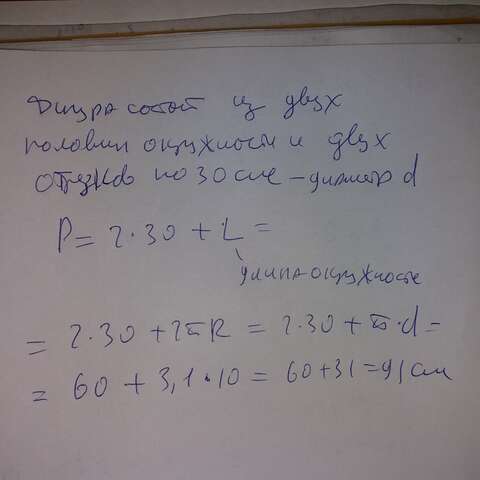 Фигура состоит из двух
половин окружности и двух
отрезков по 30 см - диаметр d
P = 2·30 + L =
длина окружности
= 2·30 + 2πR = 2·30 + π·d =
= 60 + 3,1·10 = 60+31=91см